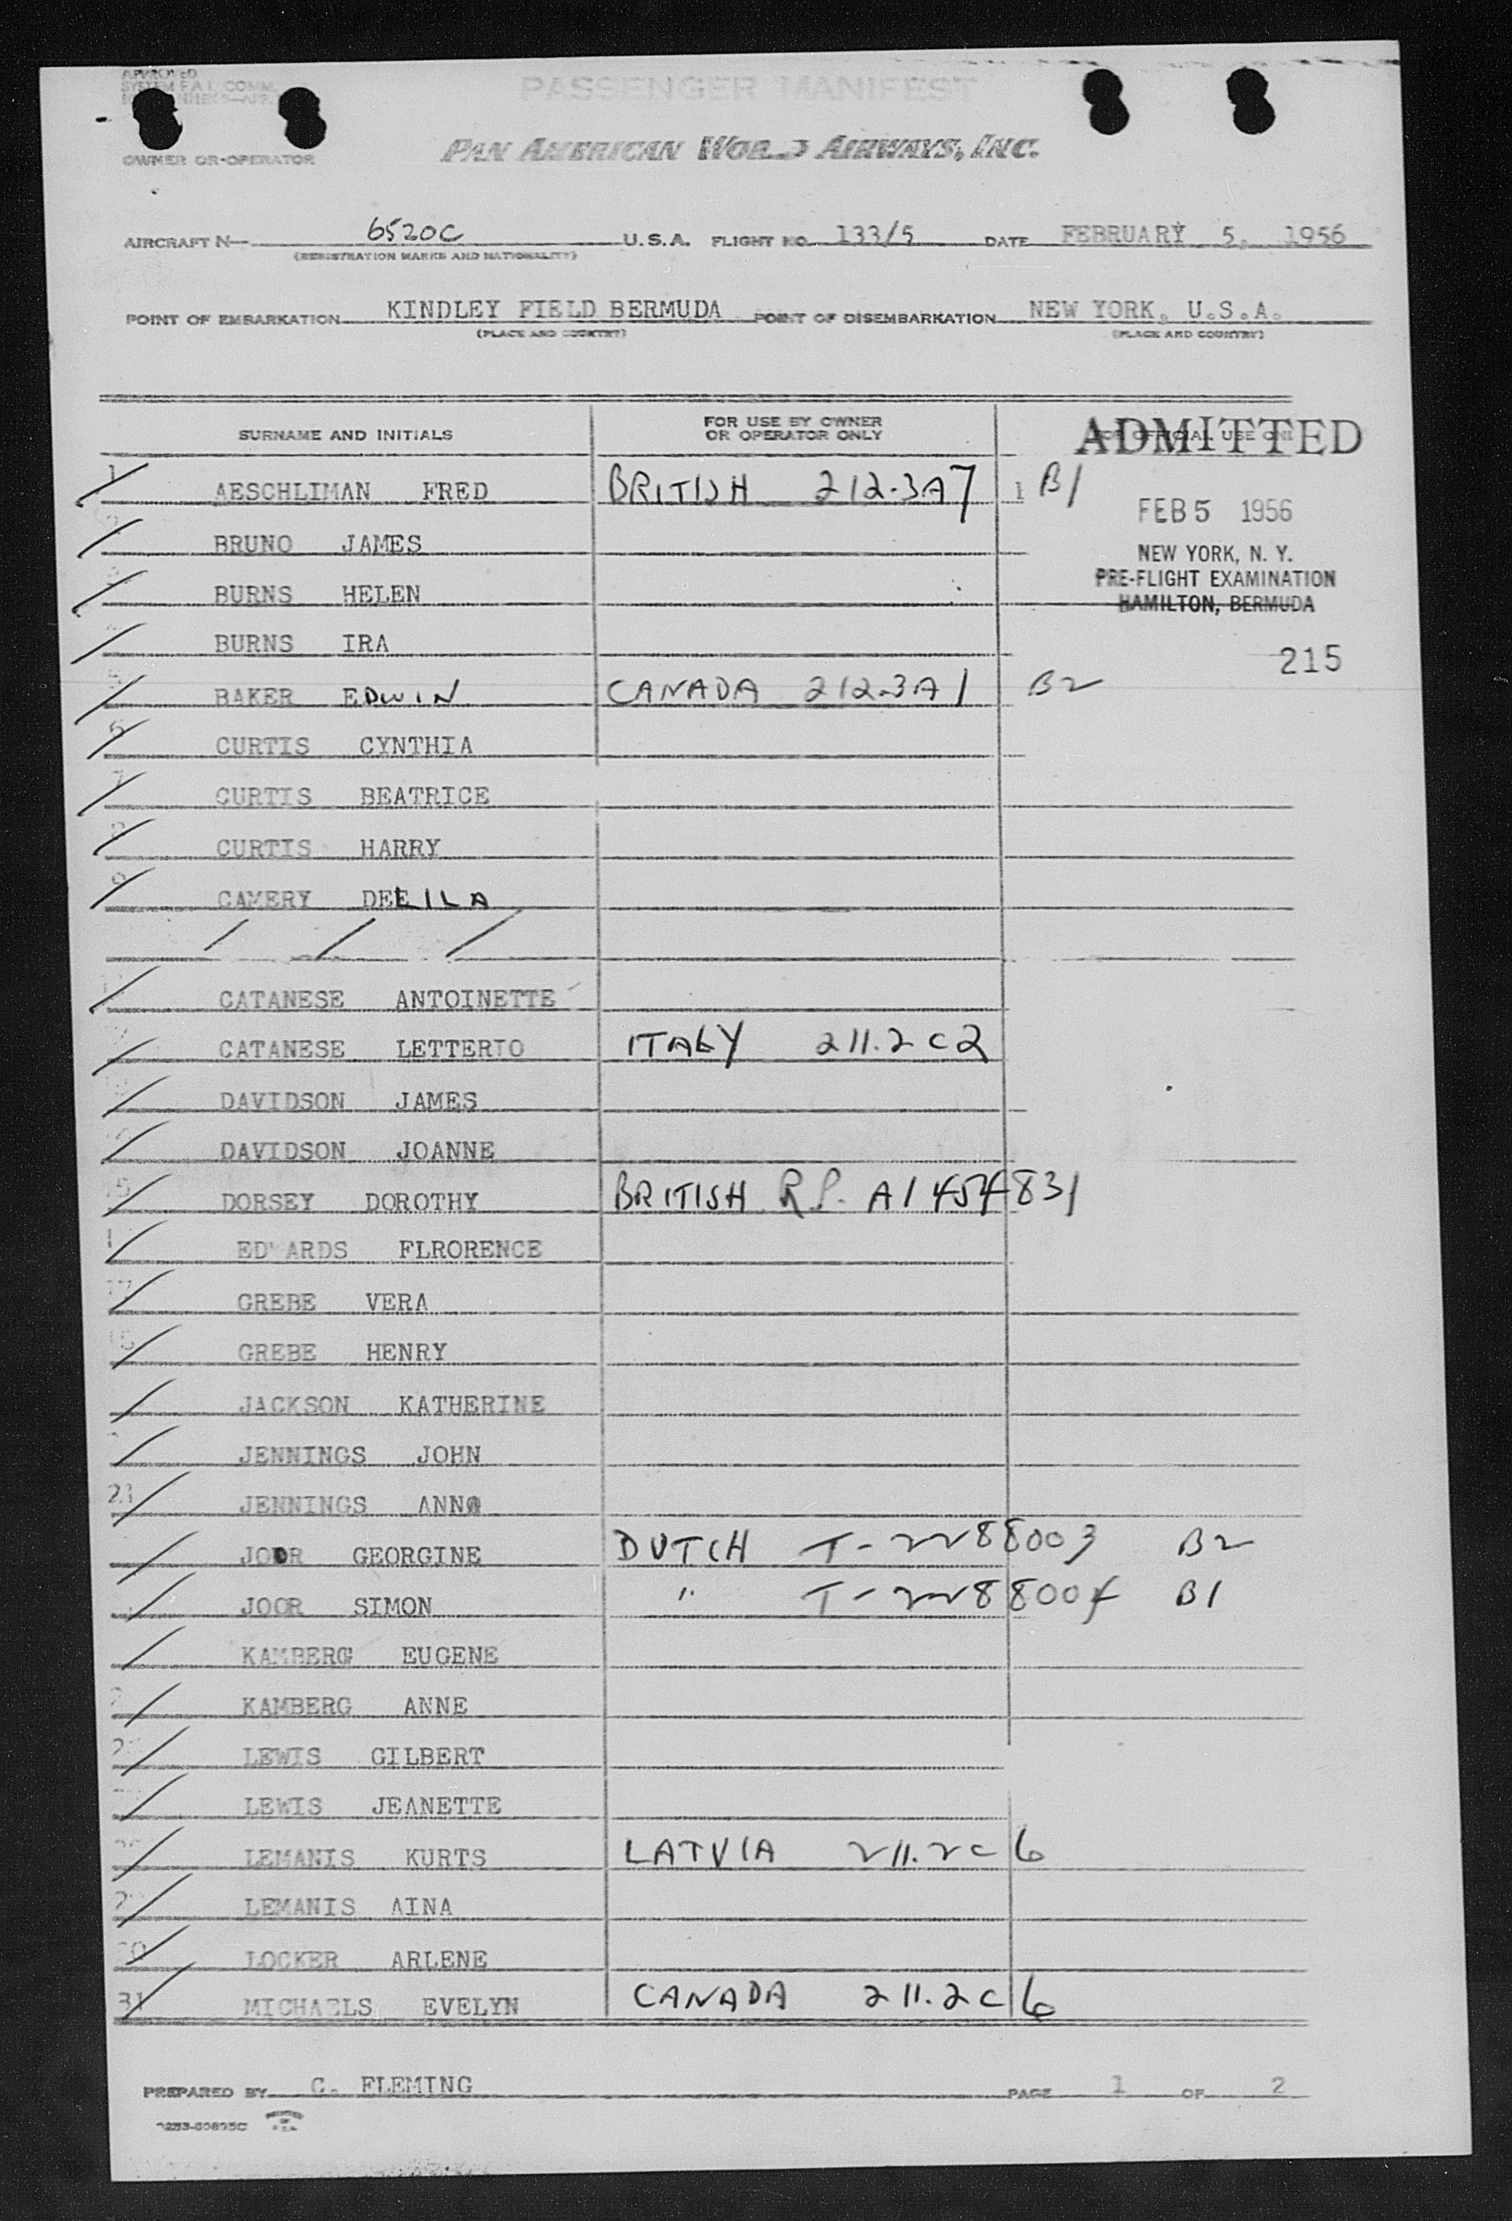 APPROVED
SYSTEM F A L COMM.
PASSENGER MANIFEST
OWNER OR OPERATOR
PAN AMERICAN WORLD AIRWAYS, INC.
AIRCRAFT N— 6520C U.S.A. FLIGHT NO. 133/5 DATE FEBRUARY 5, 1956
(REGISTRATION MARKS AND NATIONALITY)
POINT OF EMBARKATION KINDLEY FIELD BERMUDA POINT OF DISEMBARKATION NEW YORK, U.S.A.
(PLACE AND COUNTRY) (PLACE AND COUNTRY)
SURNAME AND INITIALS FOR USE BY OWNER OR OPERATOR ONLY FOR OFFICIAL USE ONL
ADMITTED
FEB 5 1956
NEW YORK, N. Y.
PRE-FLIGHT EXAMINATION
HAMILTON, BERMUDA
215
1 AESCHLIMAN FRED BRITISH 212-3A7 1 B1
BRUNO JAMES
BURNS HELEN
BURNS IRA
5 BAKER EDWIN CANADA 212-3A1 B2
6 CURTIS CYNTHIA
7 CURTIS BEATRICE
8 CURTIS HARRY
9 CAMERY DEELILA
/ / /
CATANESE ANTOINETTE
CATANESE LETTERIO ITALY 211.2C2
DAVIDSON JAMES
DAVIDSON JOANNE
15 DORSEY DOROTHY BRITISH R.P. A1454831
EDWARDS FLRORENCE
17 GREBE VERA
GREBE HENRY
JACKSON KATHERINE
JENNINGS JOHN
21 JENNINGS ANN
JOOR GEORGINE DUTCH T-2288003 B2
JOOR SIMON " T-2288004 B1
KAMBERG EUGENE
KAMBERG ANNE
LEWIS GILBERT
LEWIS JEANETTE
LEMANIS KURTS LATVIA 211.2C6
LEMANIS AINA
30 LOCKER ARLENE
31 MICHAELS EVELYN CANADA 211.2C6
PREPARED BY C. FLEMING PAGE 1 OF 2